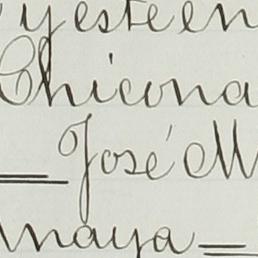 y este en
Chicona
José M
naya